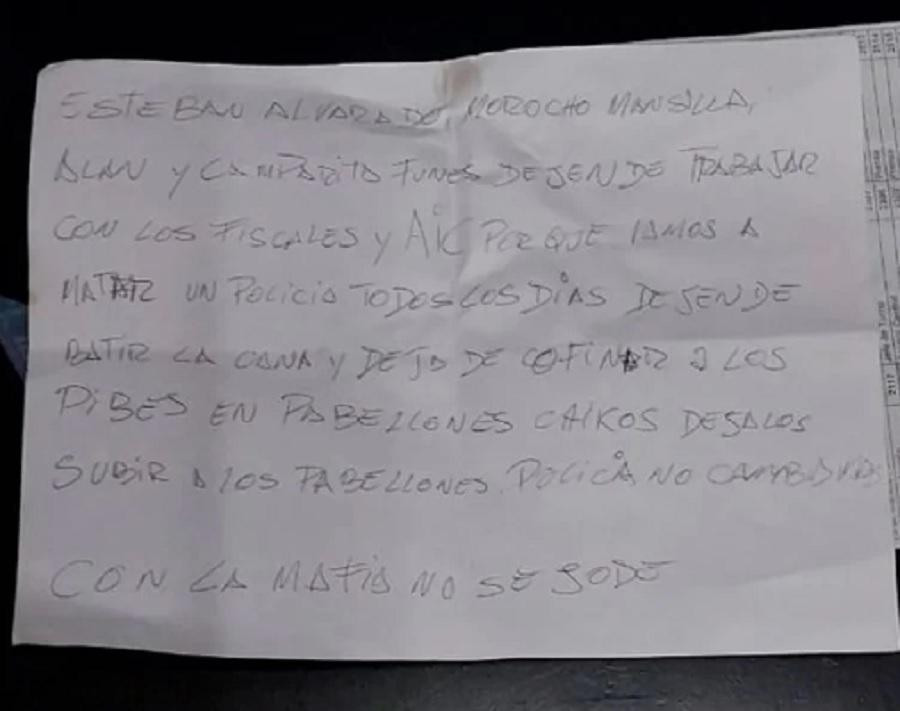 ESTEBAN ALVARADO, MOROCHO MANSILLA,
ALAN Y CAMPASITO FUNES DEJEN DE TRABAJAR
CON LOS FISCALES Y AIC PORQUE IAMOS A
MATAR UN POLICIA TODOS LOS DÍAS DEJEN DE
BATIR LA CANA Y DEJA DE COFINAR A LOS
PIBES EN PABELLONES CHIKOS DEJALOS
SUBIR A LOS PABELLONES. POLICIA NO
CON LA MAFIA NO SE JODE
2117